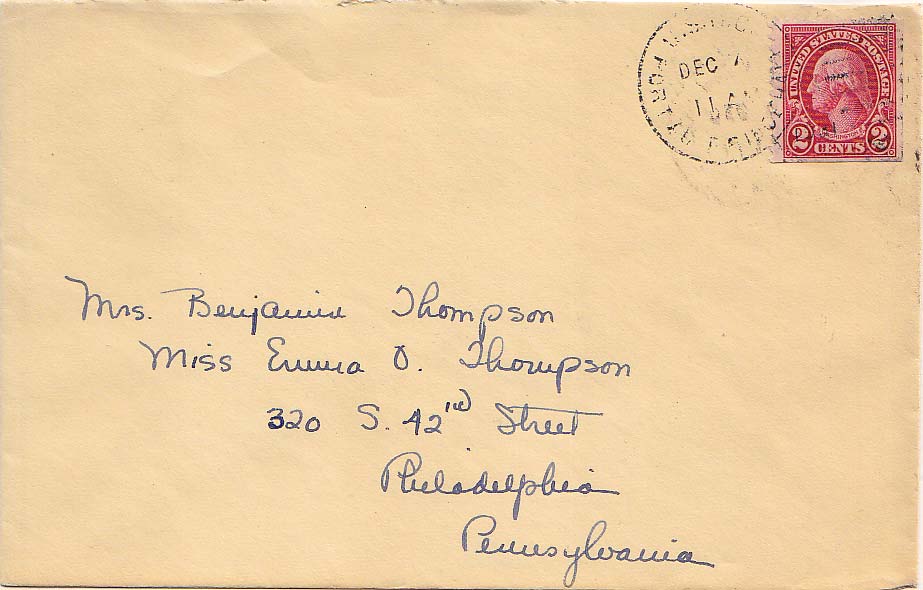 DEC 7
11 A
UNITED STATES POSTAGE
WASHINGTON
2 CENTS 2
Mrs. Benjamin Thompson
Miss Emma O. Thompson
320 S. 42nd Street
Philadelphia
Pennsylvania